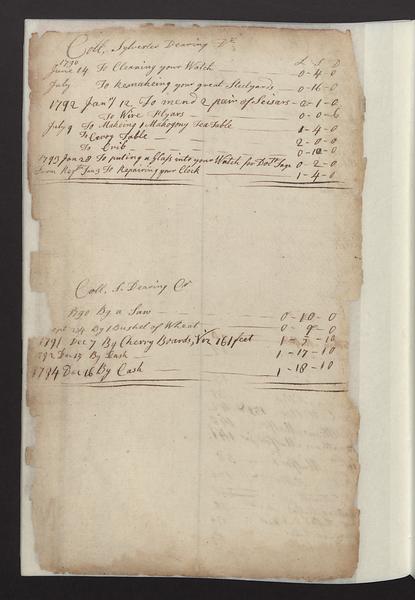 Coll. Sylvester Dearing Dr
1790 L S D
June 14 To Cleaning your Watch 0-4-0
July To Remakeing your great Steelyards 0-16-0
1792 Jany 12 To mend 2 pair of Seisars 2-1-0
To Wire Plyars 0-0-6
July 9 To Makeing 1 Mahogny Tea Table 1-4-0
To Cerry Table 2-0-0
To Crib 0-12-0
1793 Jan 28 To puting a Glass into your Watch for Dotr Sage 0-2-0
Jan 3 To Repairing your Clock 1-4-0
Coll. S. Dearing Cr
1790 By a Saw 0-10-0
Sept 24 By 1 Bushel of Wheat 0-9-0
1791 Dec 7 By Cherry Boards, Viz 161 feet 1-7-10
1792 Dec 13 By Cash 1-17-10
1794 Dec 16 By Cash 1-18-10